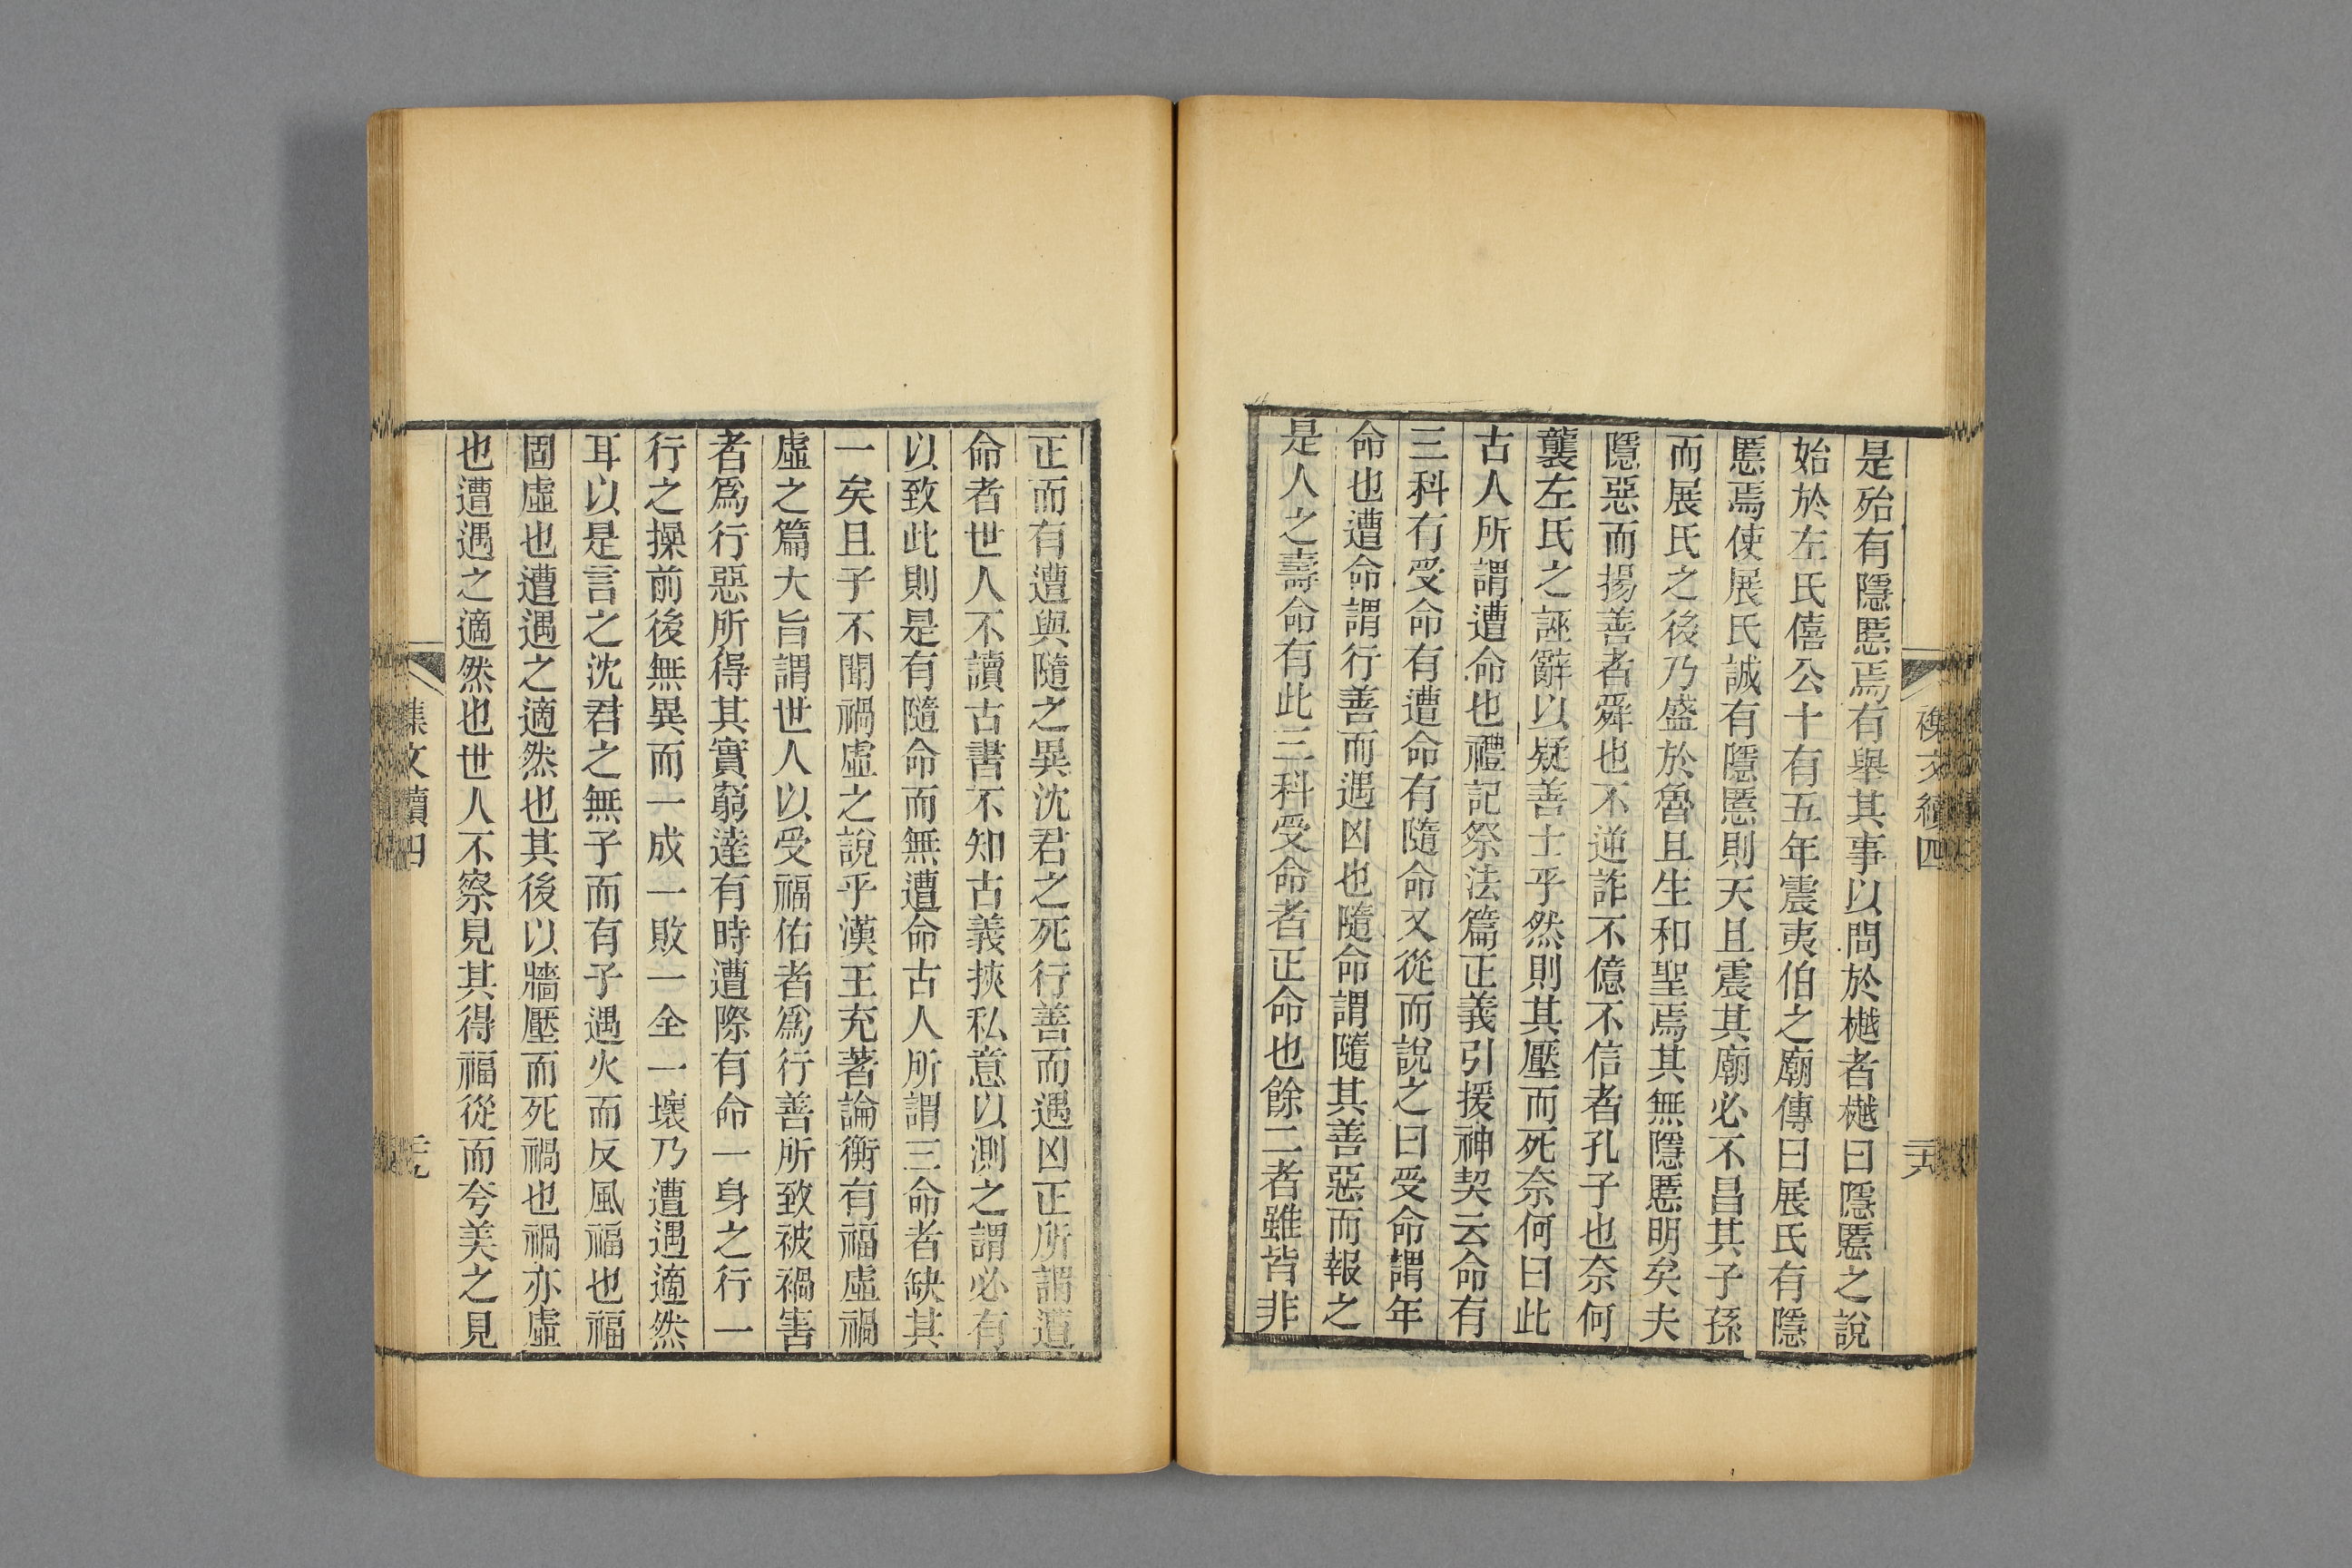 是殆有隱慝焉有舉其事以問於樾者樾曰隱慝之說
始於左氏僖公十有五年震夷伯之廟傳曰展氏有隱
慝焉使展氏誠有隱慝則天且震其廟必不昌其子孫
而展氏之後乃盛於魯且生和聖焉其無隱慝明矣夫
隱惡而揚善者舜也不逆詐不億不信者孔子也奈何
襲左氏之誣辭以疑善士乎然則其壓而死奈何曰此
古人所謂遭命也禮記祭法篇正義引援神契云命有
三科有受命有遭命有隨命又從而說之曰受命謂年
命也遭命謂行善而遇凶也隨命謂隨其善惡而報之
是人之壽命有此三科受命者正命也餘二者雖皆非
襍文續四
六
正而有遭與隨之異沈君之死行善而遇凶正所謂遭
命者世人不讀古書不知古義挾私意以測之謂必有
以致此則是有隨命而無遭命古人所謂三命者缺其
一矣且子不聞禍虛之說乎漢王充著論衡有福虛禍
虛之篇大旨謂世人以受福佑者爲行善所致被禍害
者爲行惡所得其實窮達有時遭際有命一身之行一
行之操前後無異而一成一敗一全一壞乃遭遇適然
耳以是言之沈君之無子而有子遇火而反風福也福
固虛也遭遇之適然也其後以牆壓而死禍也禍亦虛
也遭遇之適然也世人不察見其得福從而夸美之見
文續四